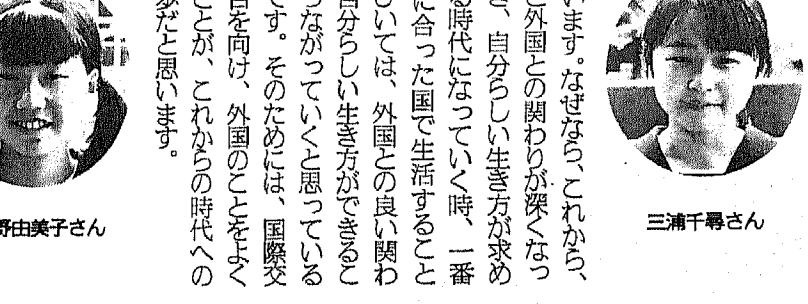 三浦千尋さん
います。なぜなら、これから、
と外国との関わりが深くなっ
き、自分らしい生き方が求め
る時代になっていく時、一番
に合った国で生活すること
いては、外国との良い関わ
自分らしい生き方ができるこ
つながっていくと思っている
です。そのためには、国際交
目を向け、外国のことをよく
ことが、これからの時代への
歩だと思います。
野由美子さん